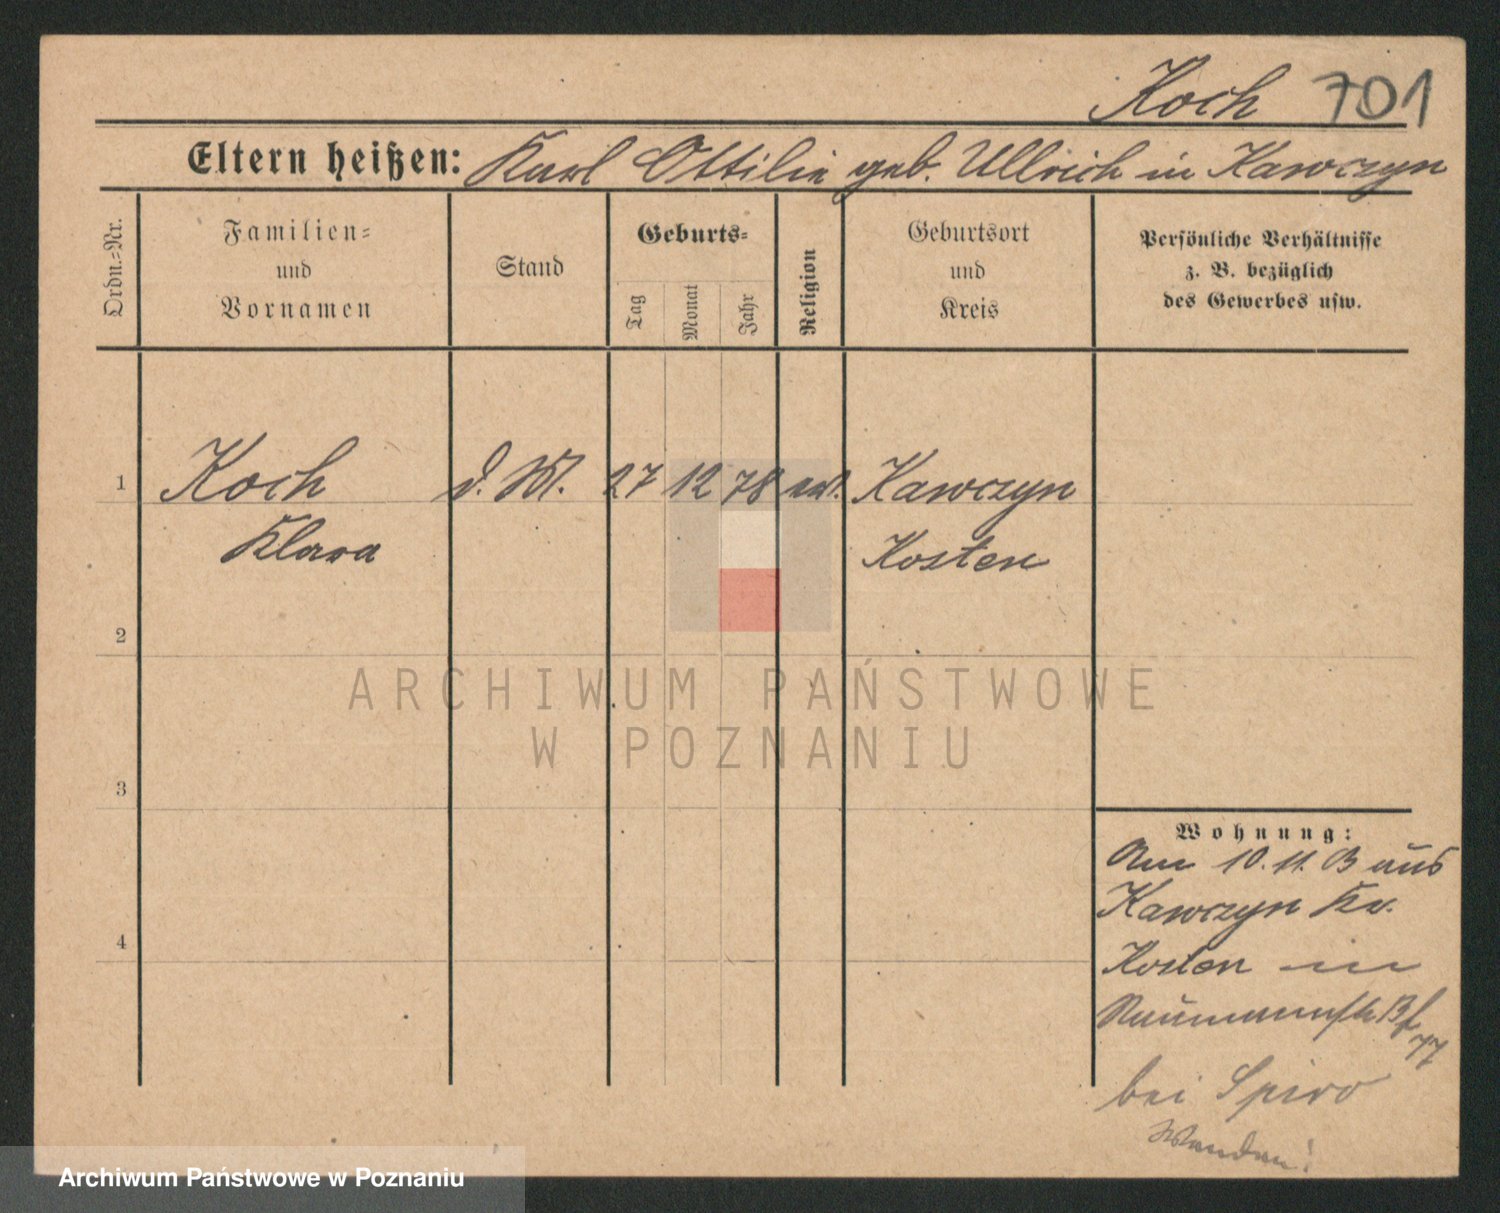 Koch 701
Eltern heißen: Karl Ottilie geb. Ullrich in Kawczyn
Ordn.-Nr.
Familien-
und
Vornamen
Stand
Geburts-
Tag
Monat
Jahr
Religion
Geburtsort
und
Kreis
Persönliche Verhältnisse
z. B. bezüglich
des Gewerbes usw.
1 Koch d. M. 27 12 78 ev. Kawczyn
Klara Kosten
2
3
4
Wohnung:
Am 10. 11. 03 aus
Kawczyn Kr.
Kosten in
Naumannstr.
bei Spiro
Wenden!
ARCHIWUM PAŃSTWOWE
W POZNANIU
Archiwum Państwowe w Poznaniu